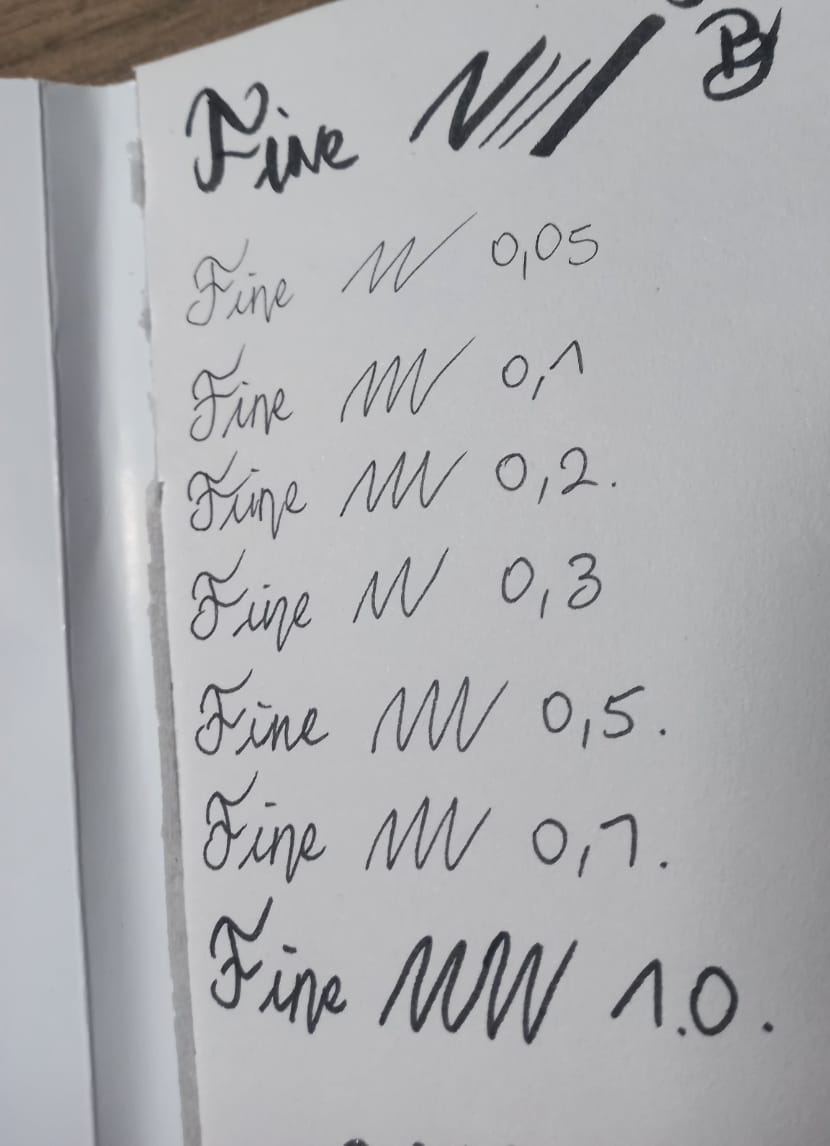 Fine B
Fine 0,05
Fine 0,1
Fine 0,2.
Fine 0,3
Fine 0,5.
Fine 0,7.
Fine 1.0.